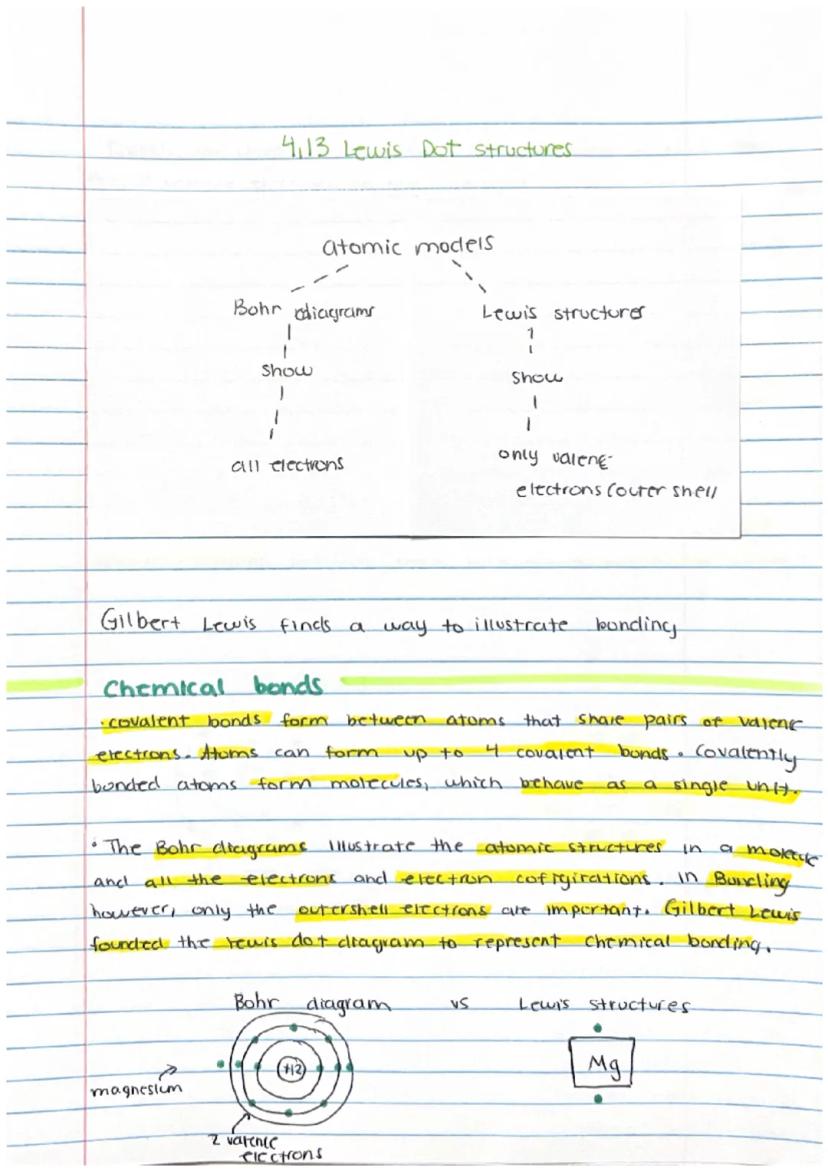 4.13 Lewis Dot structures
atomic models
Bohr diagrams
Lewis structures
show
show
all electrons
only valene
electrons (outer shell
Gilbert Lewis finds a way to illustrate bonding
Chemical bonds
• covalent bonds form between atoms that share pairs of valene
electrons. Atoms can form up to 4 covalent bonds. Covalently
bonded atoms form molecules, which behave as a single unit.
• The Bohr diagrams illustrate the atomic structures in a molecule
and all the electrons and electron cofigirations. In Bonding
however, only the outershell electrons are important. Gilbert Lewis
founded the lewis dot diagram to represent chemical bonding.
Bohr diagram vs Lewis structures
+12
Mg
magnesium
2 valence
electrons